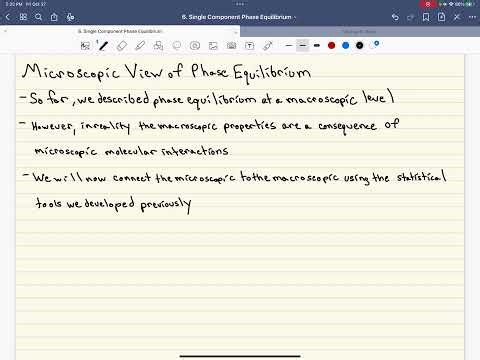 5:20 PM Fri Oct 27
6. Single Component Phase Equilibrium
6. Single Component Phase Equilibrium
Microscopic View of Phase Equilibrium
- So far, we described phase equilibrium at a macroscopic level
- However, in reality the macroscopic properties are a consequence of
microscopic molecular interactions
- We will now connect the microscopic to the macroscopic using the statistical
tools we developed previously